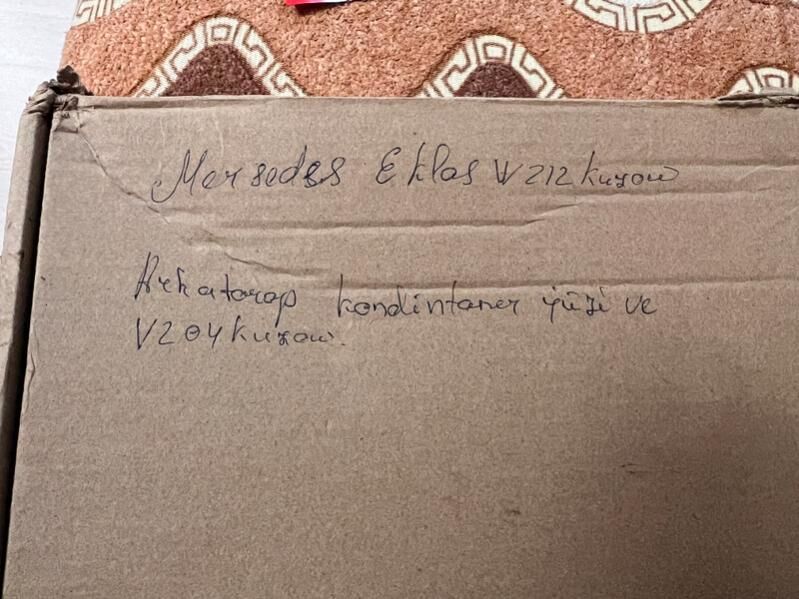 Mersedes E klas W212 kuzow
Arka tarap kondintaner ýüzi ve
V204 kuzow.